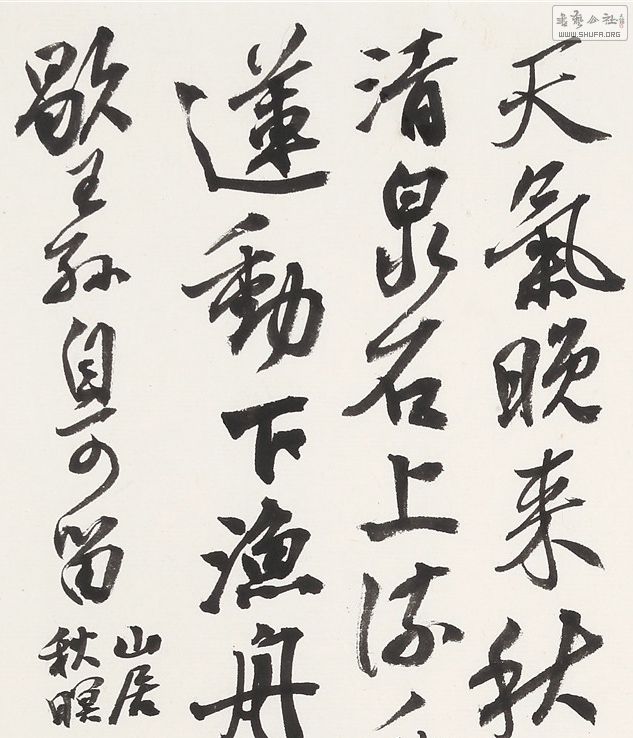 天氣晚来秋
清泉石上流
蓮動下漁舟
歇王孫自可留
山居
秋暝
書藝公社
WWW.SHUFA.ORG